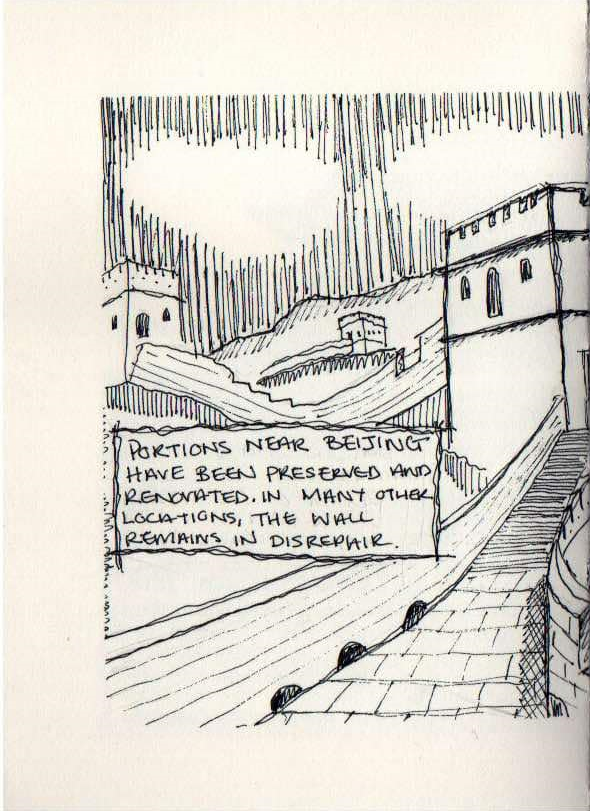 PORTIONS NEAR BEIJING
HAVE BEEN PRESERVED AND
RENOVATED. IN MANY OTHER
LOCATIONS, THE WALL
REMAINS IN DISREPAIR.